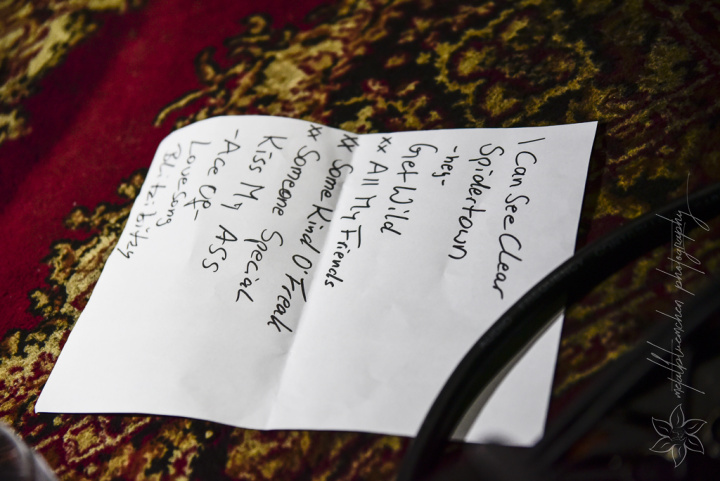 I Can See Clear
Spidertown
-hey-
Get Wild
xx All My Friends
xx Some Kind O'Freak
xx Someone Special
Kiss My Ass
-Ace Of-
Lovesong
metallbluemchen photography